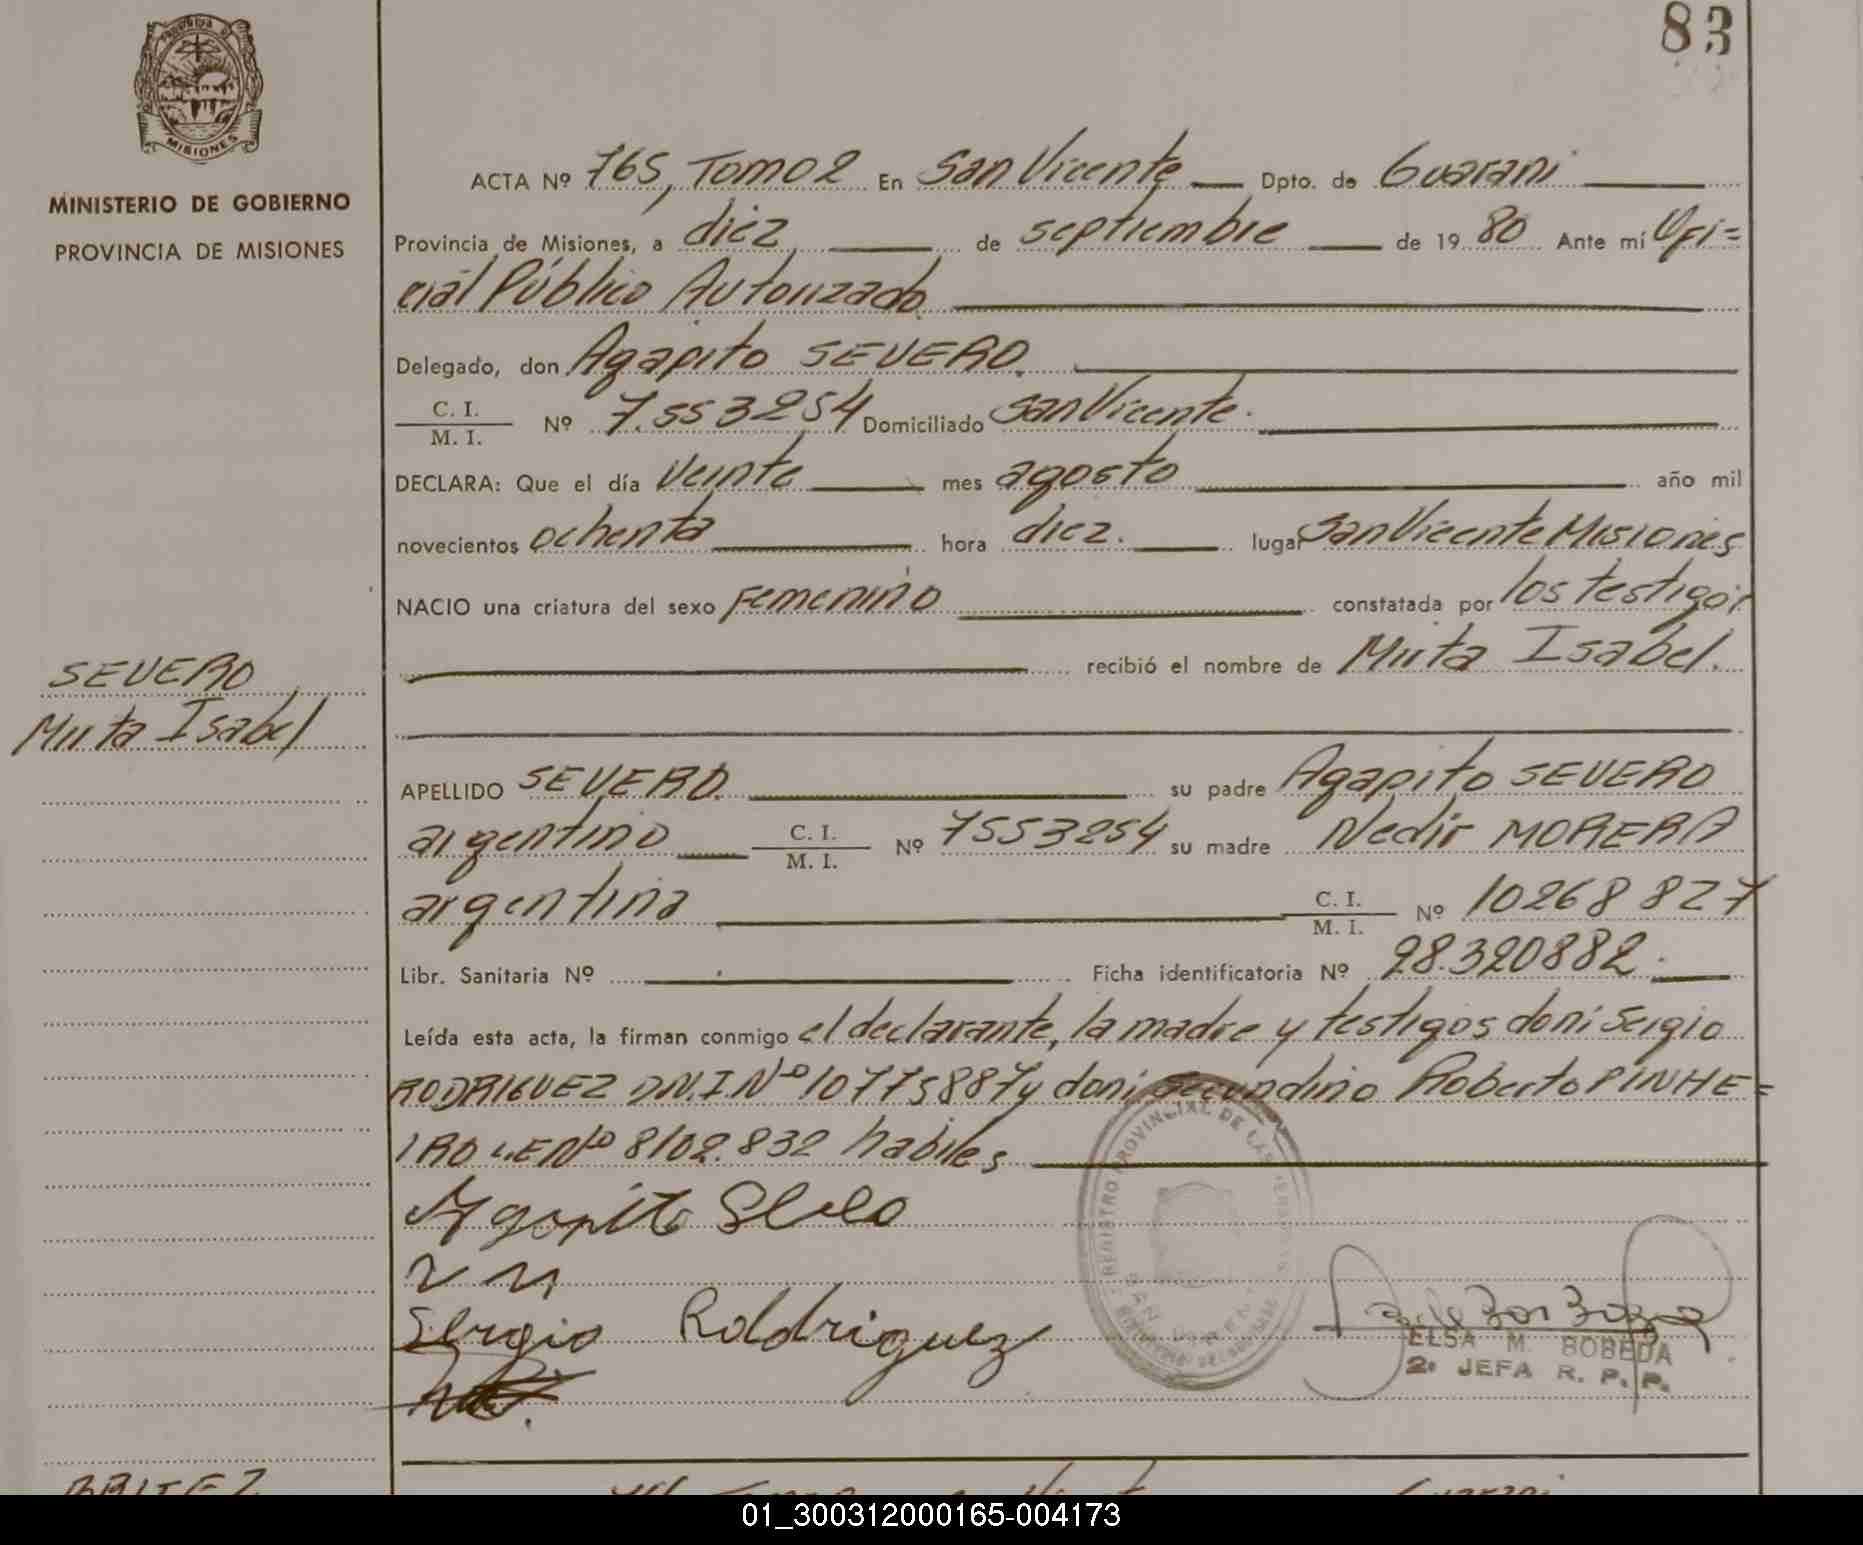 83
PROVINCIA DE
MISIONES
MINISTERIO DE GOBIERNO
PROVINCIA DE MISIONES
ACTA Nº 765, Tomo 2 En San Vicente Dpto. de Guarani
Provincia de Misiones, a diez de septiembre de 1980 Ante mí Ofi=
cial Público Autorizado
Delegado, don Agapito SEVERO.
C. I.
M. I. Nº 7.553254 Domiciliado San Vicente.
DECLARA: Que el día veinte mes agosto año mil
novecientos ochenta hora diez. lugar San Vicente Misiones
NACIO una criatura del sexo Femenino constatada por los testigos
recibió el nombre de Mirta Isabel.
SEVERO
Mirta Isabel
APELLIDO SEVERO. su padre Agapito SEVERO
argentino C. I. M. I. Nº 7553254 su madre Nedir MORERA
argentina C. I. M. I. Nº 10268827
Libr. Sanitaria Nº Ficha identificatoria Nº 28.320882.
Leída esta acta, la firman conmigo el declarante, la madre y testigos don: Sergio
RODRIGUEZ D.N.I. Nº 10775887 y don: Secundino Roberto PINHE=
IRO L.E Nº 8102.832 habiles
Agapito Severo
Sergio Roddriguez
REGISTRO PROVINCIAL DE LAS PERSONAS
SAN VICENTE
ELSA M. BOBEDA
2ª JEFA R. P. P.
BRITEZ
01_300312000165-004173